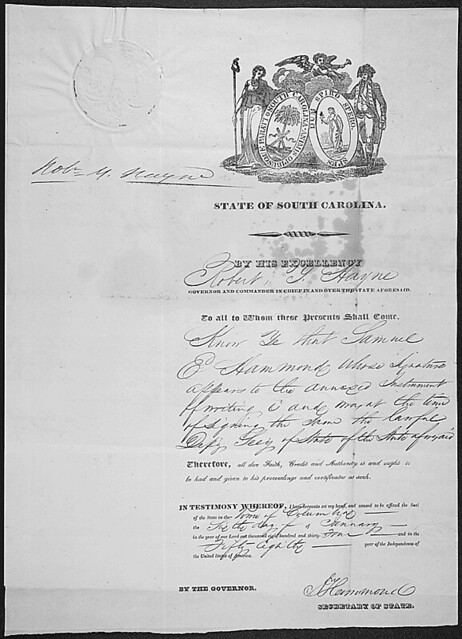 SOUTH CAROLINA
DUM SPIRO SPERO
SPES
Robt Y. Hayne
STATE OF SOUTH CAROLINA.
BY HIS EXCELLENCY
Robert Y. Hayne
GOVERNOR AND COMMANDER IN CHIEF IN AND OVER THE STATE AFORESAID.
To all to Whom these Presents Shall Come.
Know Ye that Samuel
Hammond whose Signature
appears to the annexed Instrument
of writing is and was at the time
of signing the same the lawful
Depy Secy of State of the State aforesaid
Therefore, all due Faith, Credit and Authority is and ought to
be had and given to his proceedings and certificates as such.
IN TESTIMONY WHEREOF, I have hereunto set my hand, and caused to be affixed the Seal
of the State in the Town of Columbia
the Sixth day of January
in the year of our Lord one thousand eight hundred and thirty four and in the
Fifty eighth year of the Independence of
the United States of America.
BY THE GOVERNOR.
Hammond
SECRETARY OF STATE.